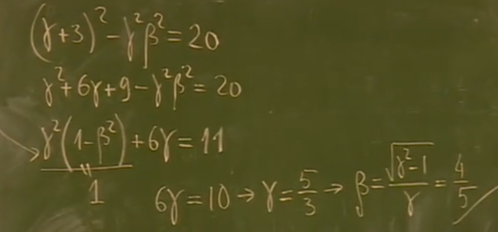 (γ+3)² - γ²β² = 20
γ² + 6γ + 9 - γ²β² = 20
γ²(1-β²) + 6γ = 11
1
6γ = 10 → γ = 5/3 → β = √(γ²-1)/γ = 4/5